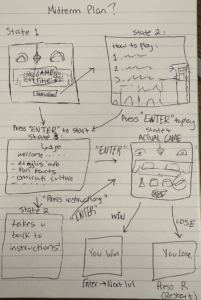 Midterm Plan?
State 1
State 2:
GAME
TITLE
How to play:
1.
2.
3.
Press "ENTER" to start
Press "ENTER" to play
State 3
State 4
ACTUAL GAME
Welcome
"ENTER"
"Press instructions"
"ENTER"
State 2
takes u
back to
instructions!
WIN
LOSE
You Win
You Lose
Enter → Next lvl
Press R
(Restart)